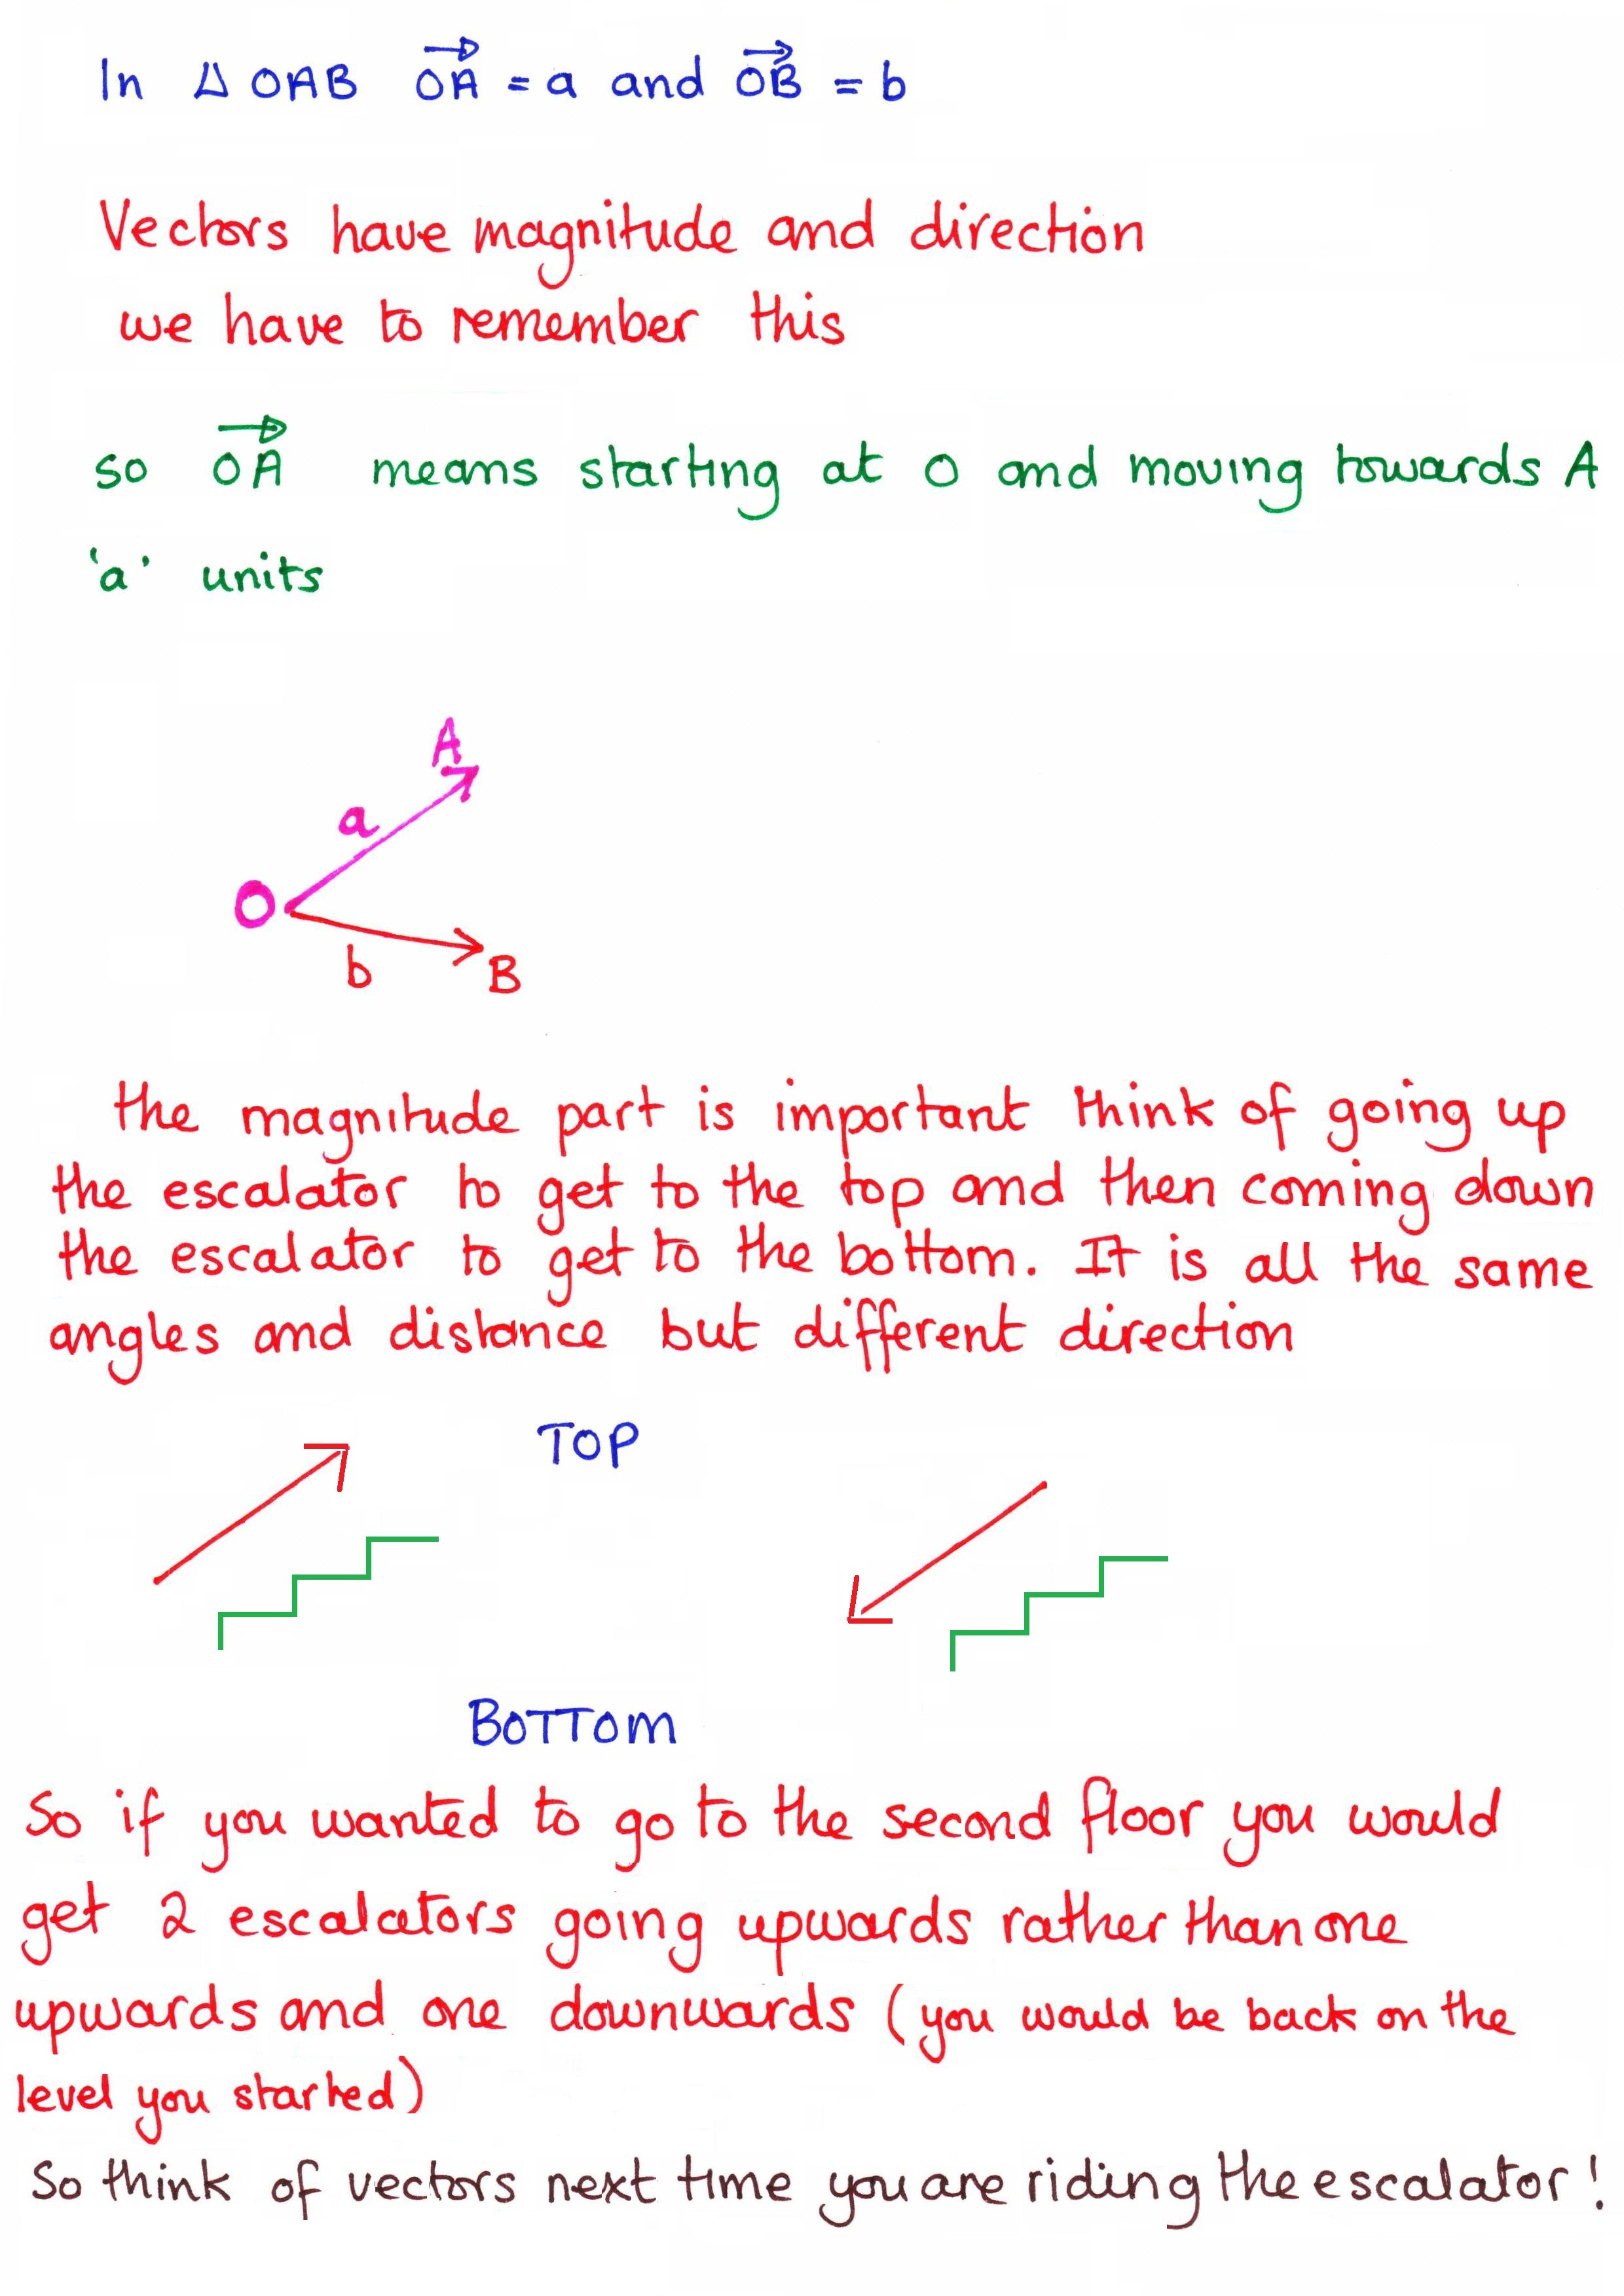 In △ OAB $\overrightarrow{OA}$ = a and $\overrightarrow{OB}$ = b
Vectors have magnitude and direction
we have to remember this
so $\overrightarrow{OA}$ means starting at O and moving towards A
'a' units
A
a
O
b
B
the magnitude part is important think of going up
the escalator to get to the top and then coming down
the escalator to get to the bottom. It is all the same
angles and distance but different direction
TOP
BOTTOM
So if you wanted to go to the second floor you would
get 2 escalators going upwards rather than one
upwards and one downwards (you would be back on the
level you started)
So think of vectors next time you are riding the escalator!